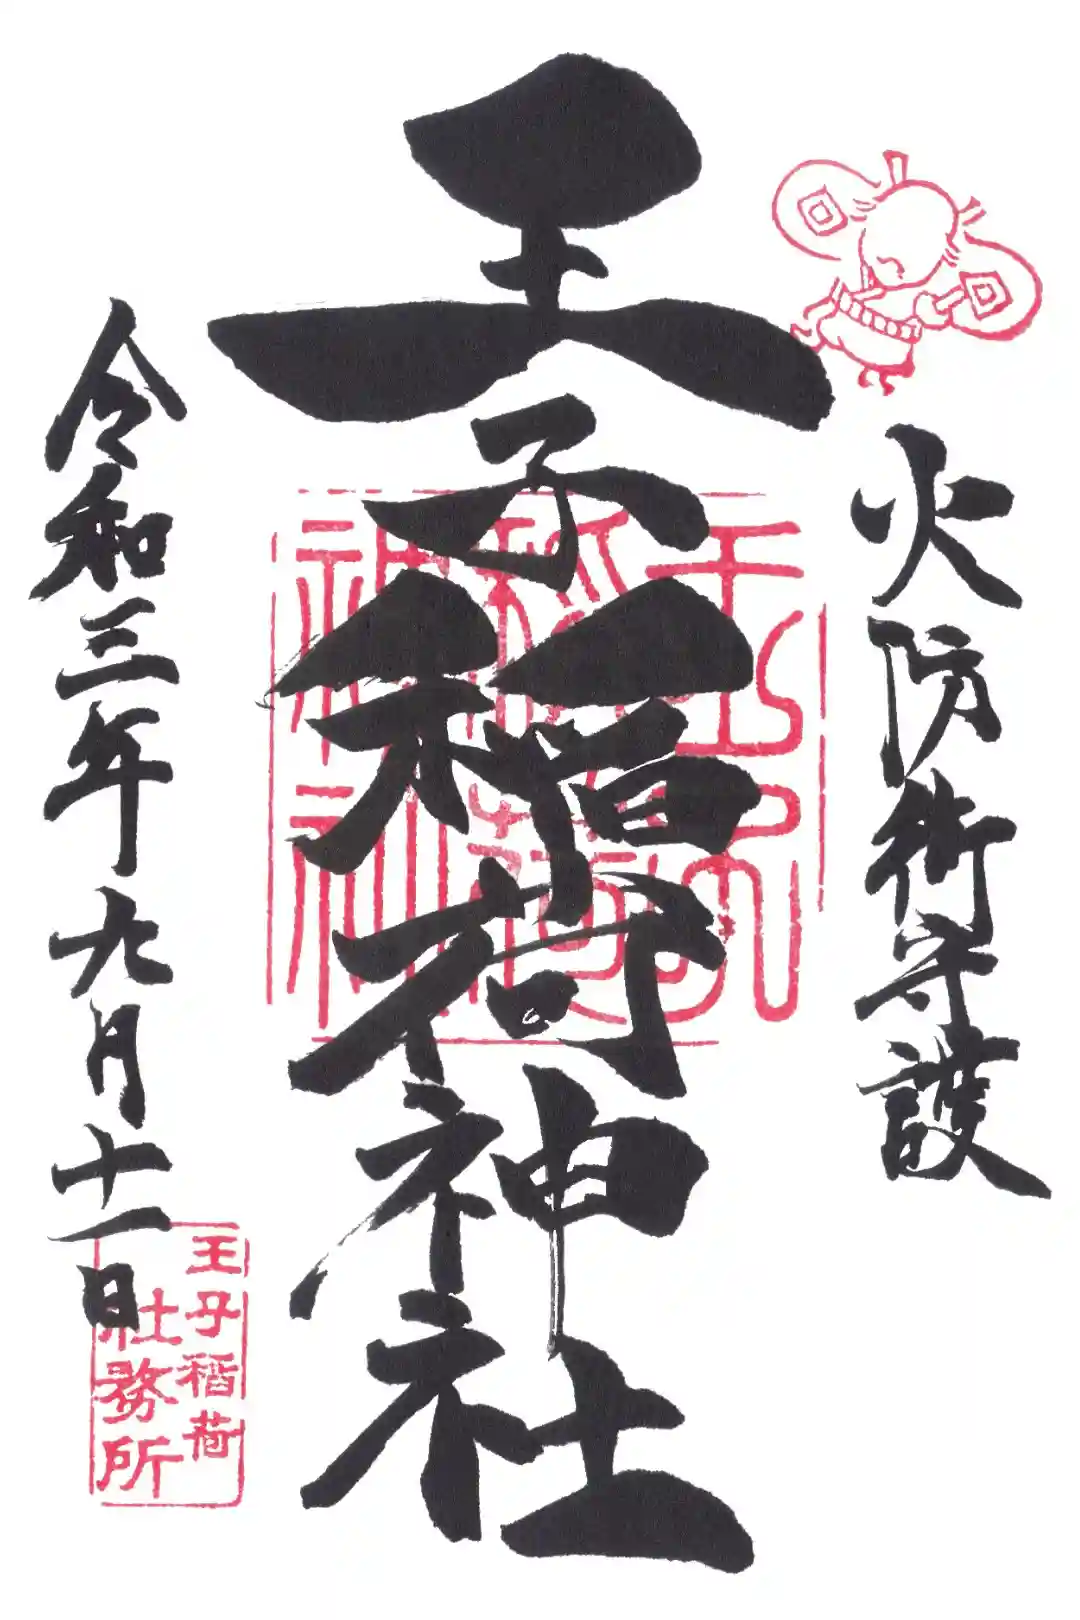 火防術守護
王子稲荷神社
令和三年九月十一日
王子
稲荷
神社
王子稲荷
社務所